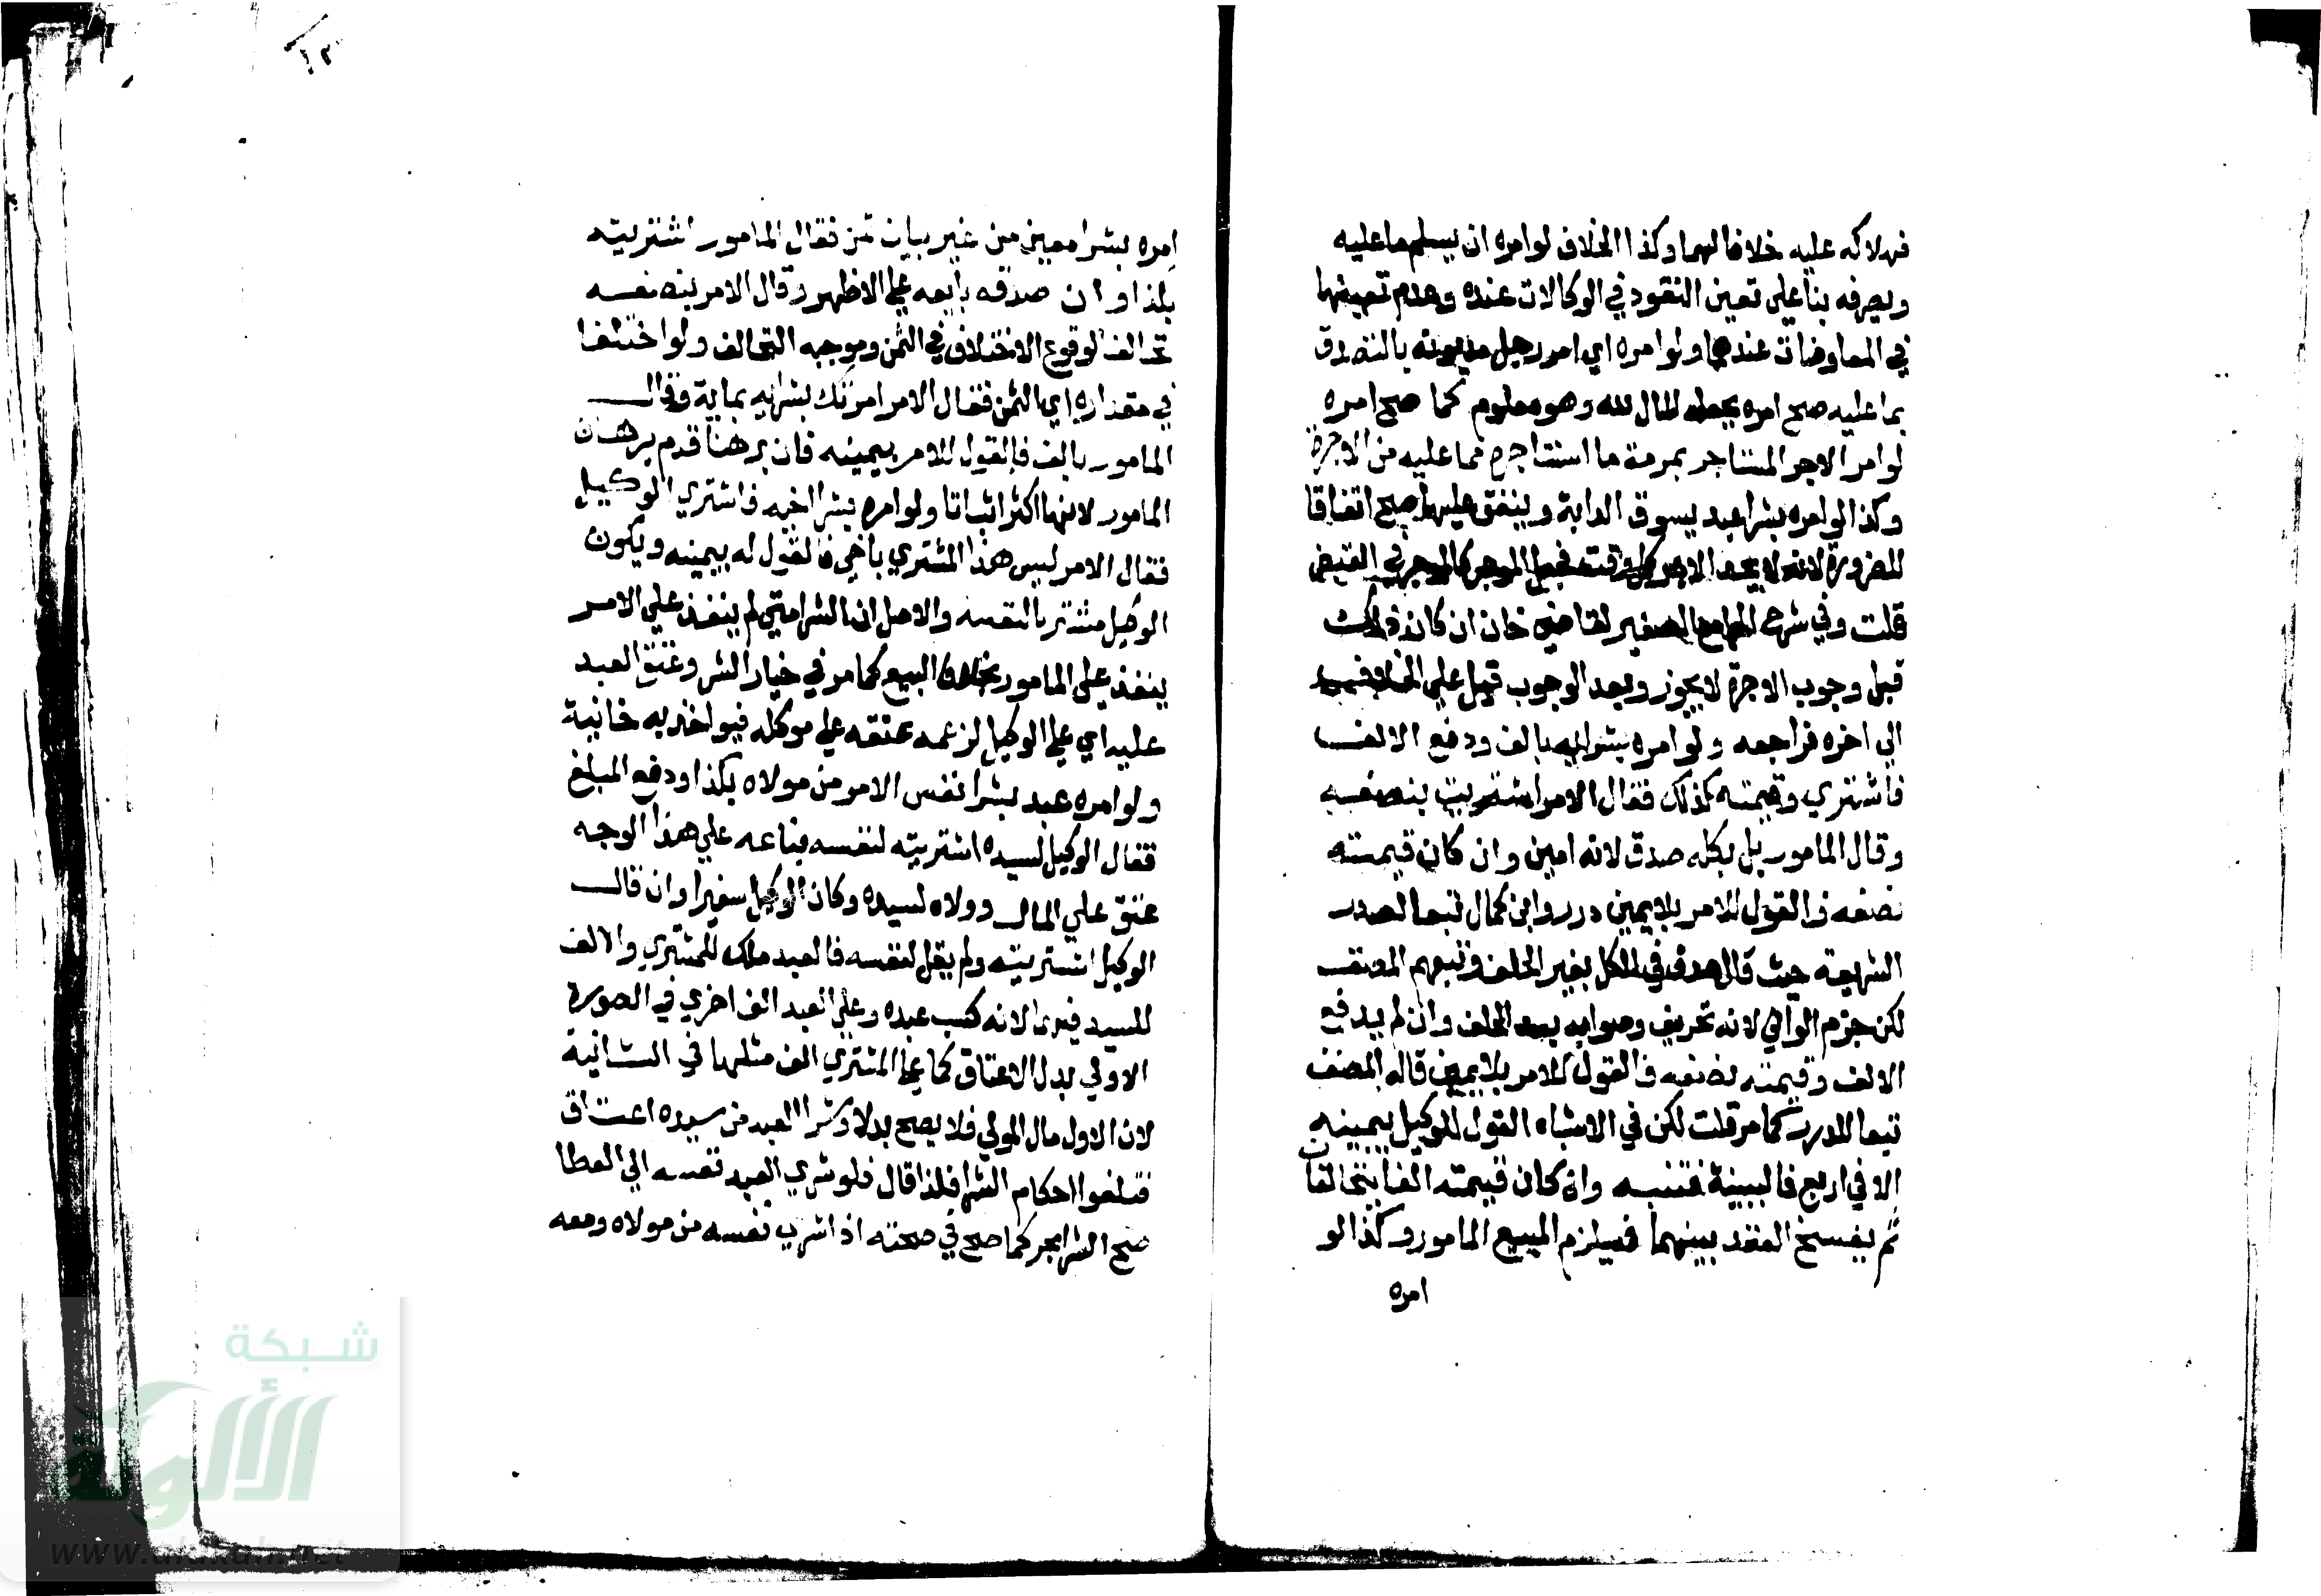 فهلاكه عليه خلافا لهما وكذا الخلاف لو امره ان يسلم ما عليه
ويصرفه بنا على تعين النقود في الوكالات عنده وعدم تعينها
في المعاوضات عندهما ولو امره اي امر رجل مديونه بالتصدق
بما عليه صح امره بجعله المال لله وهو معلوم كما صح امره
لو امر الاجر المستاجر بمرمة ما استاجره مما عليه من الاجرة
وكذا لو امره بشرا عبد يسوق الدابة وينفق عليها صح اتفاقا
للضرورة لانه لا يجد الاجر كل وقت فجعل الموجر كالموجر في القبض
قلت وفي شرح الجامع الصغير لقاضي خان ان كان ذلك
قبل وجوب الاجرة لا يجوز وبعد الوجوب قيل على الخلاف
الي اخره فراجعه ولو امره بشرايه بالف ودفع الالف
فاشتري وقيمته كذلك فقال الامر اشتريت بنصفه
وقال المامور بل بكله صدق لانه امين وان كان قيمته
نصفه فالقول للامر بلا يمين درر وابن كمال تبعا لصدر
الشريعة حيث قال صدق في الكل بغير الحلف وتبعهم المصنف
لكن جزم الواني لانه تحريف وصوابه بعد الحلف وان لم يدفع
الالف وقيمته نصفه فالقول للامر بلا يمين قاله المصنف
تبعا للدرر كما مر قلت لكن في الاشباه القول للوكيل بيمينه
الا في اربع فالبينة فتنبه وان كان قيمته الفا يتحالفان
ثم يفسخ العقد بينهما فيلزم المبيع المامور وكذا لو
امره
١٢
امره بشرا معين من غير بيان ثمن فقال المامور اشتريته
بكذا وان صدقه بايعه علي الاظهر وقال الامر بنصفه
تحالفا لوقوع الاختلاف في الثمن وموجبه التحالف ولو اختلفا
في مقداره اي الثمن فقال الامر امرتك بشرايه بماية وقال
المامور بالف فالقول للامر بيمينه فان برهنا قدم برهان
المامور لانها اكثر اثباتا ولو امره بشرا اخيه فاشتري الوكيل
فقال الامر ليس هذا المشتري باخي فالقول له بيمينه ويكون
الوكيل مشتريا لنفسه والاصل ان الشرا متي لم ينفذ علي الامر
ينفذ علي المامور بخلاف البيع كما مر في خيار الشر وعتق العبد
عليه اي علي الوكيل لزعمه عتقه علي موكله فيواخذ به خانية
ولو امره عبد بشرا نفس الامر من مولاه بكذا ودفع المبلغ
فقال الوكيل لسيده اشتريته لنفسه فباعه علي هذا الوجه
عتق علي المال وولاه لسيده وكان الوكيل سفيرا وان قال
الوكيل اشتريته ولم يقل لنفسه فالعبد ملك للمشتري والالف
للسيد فيهما لانه كسب عبده وعلي العبد الف اخري في الصورة
الاولي بدل الاعتاق كما علي المشتري الف مثلها في الثانية
لان الاول مال المولي فلا يصح بدلا وشرا العبد من سيده اعتاق
فتلغوا احكام الشرا فلذا قال فلو شري العبد نفسه الي العطا
صح الشرا بحر كما صح في حصته اذا اشري نفسه من مولاه ومعه
شبكة
الألوكة
www.alukah.net